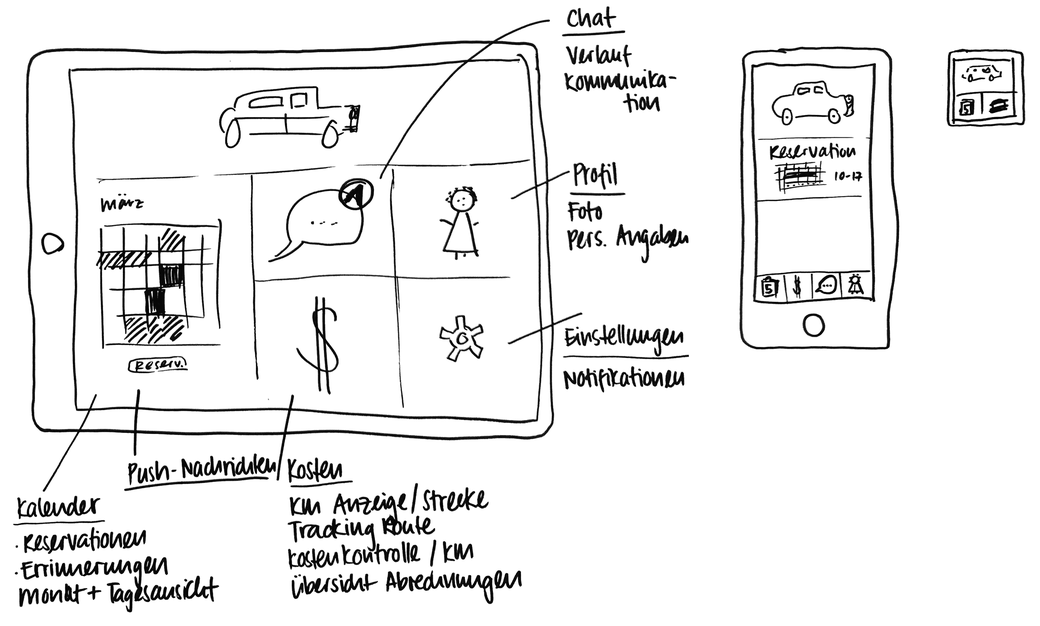 Chat
Verlauf
Kommunika-
tion
Reservation
10-17
Profil
Foto
Pers. Angaben
märz
Reserv.
$
Einstellungen
Notifikationen
5
$
Push-Nachrichten
Kalender
· Reservationen
· Errinnerungen
Monat + Tagesansicht
Kosten
KM Anzeige/Strecke
Tracking Route
Kostenkontrolle / KM
Übersicht Abrechnungen